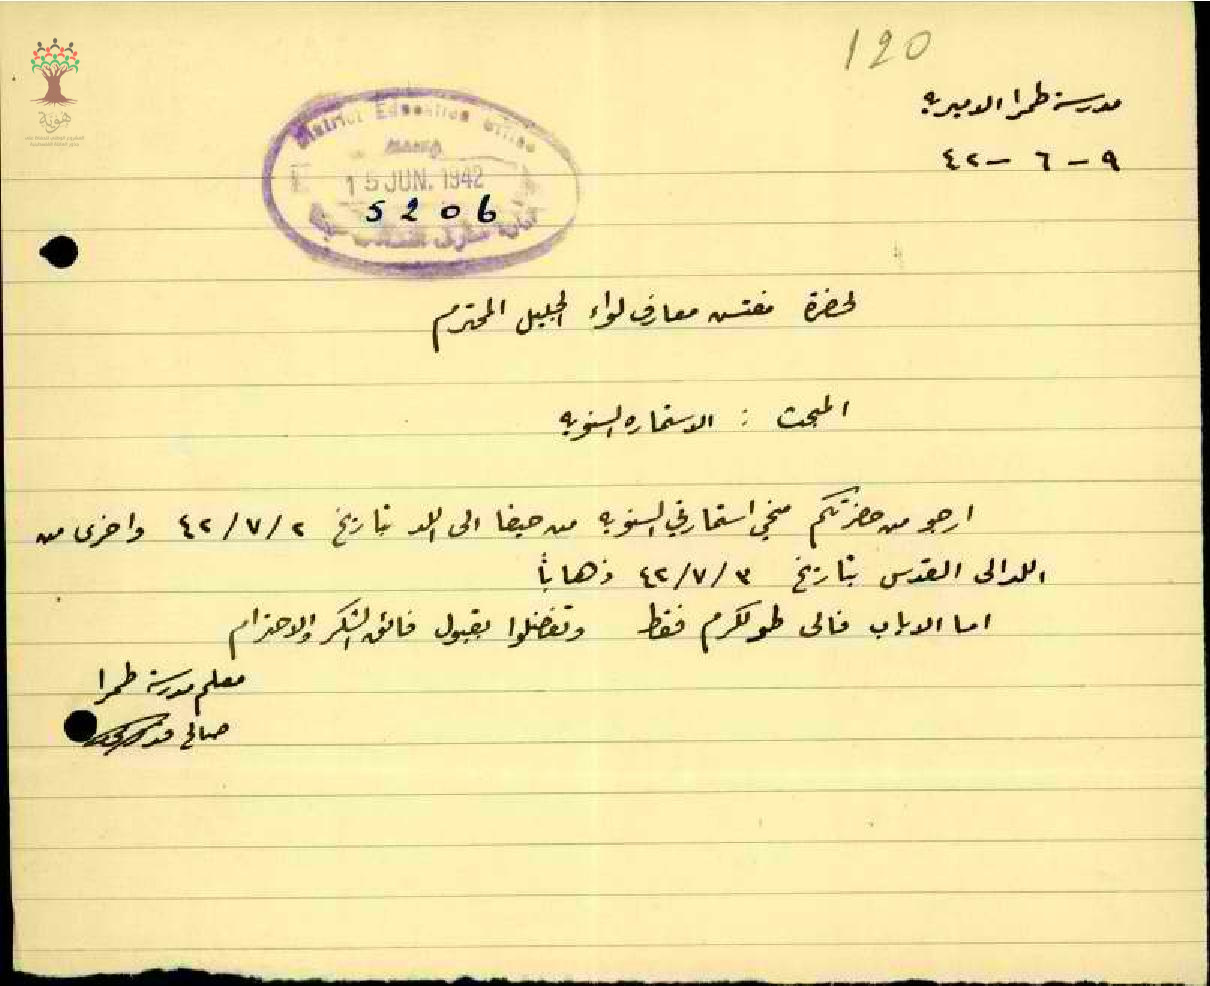 120
مدرسة طمرا الاميريه
٩ - ٦ - ٤٢
District Education Office
15 JUN. 1942
5206
هوية
لحضرة مفتش معارف لواء الجليل المحترم
المبحث : الاستماره السنويه
ارجو من حضرتكم منحي استمارتي السنويه من حيفا الى اللد بتاريخ ٤٢/٧/٢ واخرى من
اللد الى القدس بتاريخ ٤٢/٧/٣ ذهاباً
اما الاياب فالى طولكرم فقط وتفضلوا بقبول فائق الشكر والاحترام
معلم مدرسة طمرا
صالح